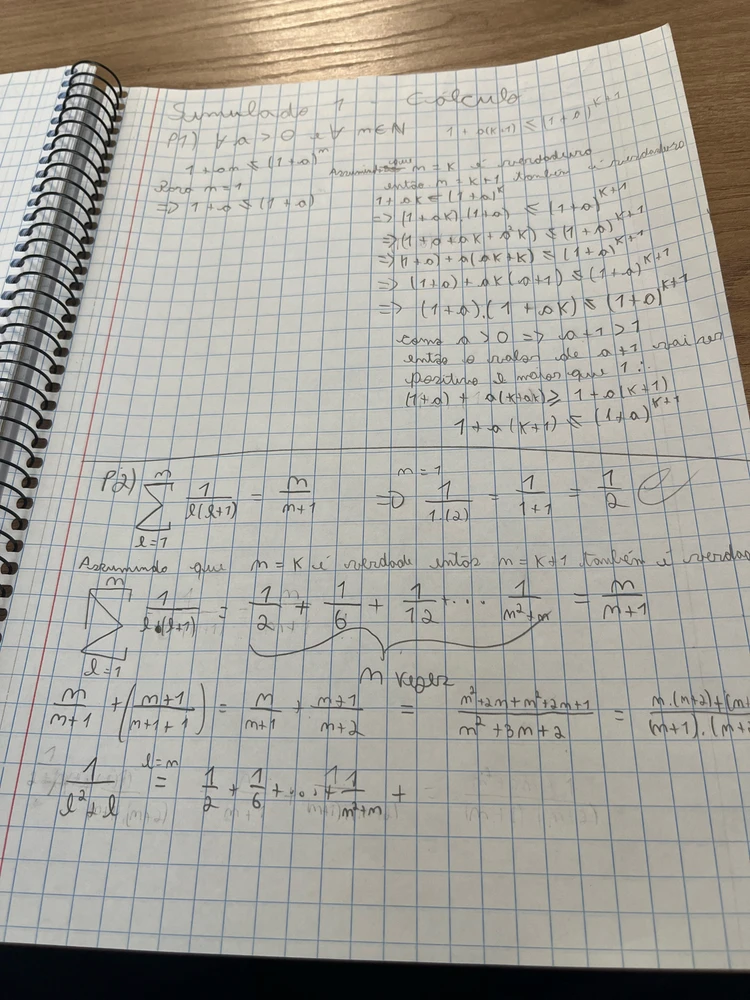 Simulado 1 - Cálculo
P1) ∀ a > 0 e ∀ n ∈ N
1 + an ≤ (1+a)^n
Para n = 1
=> 1 + a ≤ (1+a)
1 + a(k+1) ≤ (1+a)^{k+1}
Assumindo que n = k é verdadeiro
então n = k+1 também é verdadeiro
1 + ak ≤ (1+a)^k
=> (1+ak).(1+a) ≤ (1+a)^{k+1}
=> (1 + a + ak + a²k) ≤ (1+a)^{k+1}
=> (1+a) + a(ak+k) ≤ (1+a)^{k+1}
=> (1+a) + ak(a+1) ≤ (1+a)^{k+1}
=> (1+a).(1 + ak) ≤ (1+a)^{k+1}
como a > 0 => a+1 > 1
então o valor de a+1 vai ser
positivo e maior que 1 ∴
(1+a) + a(k+ak) ≥ 1+a(k+1)
1 + a(k+1) ≤ (1+a)^{k+1}
P2) \sum_{l=1}^{n} \frac{1}{l(l+1)} = \frac{n}{n+1} => n=1 \frac{1}{1.(2)} = \frac{1}{1+1} = \frac{1}{2}
Assumindo que n = k é verdade então n = k+1 também é verdad
\sum_{l=1}^{n} \frac{1}{l.(l+1)} = \frac{1}{2} + \frac{1}{6} + \frac{1}{12} + ... \frac{1}{n²+n} = \frac{n}{n+1}
n vezes
\frac{n}{n+1} + (\frac{n+1}{n+1+1}) = \frac{n}{n+1} + \frac{n+1}{n+2} = \frac{n²+2n+n²+2n+1}{n²+3n+2} = \frac{n.(n+2)+(n+}{(n+1).(n+2}
\frac{1}{l²+l} l=n = \frac{1}{2} + \frac{1}{6} + ... + \frac{1}{n²+n} +